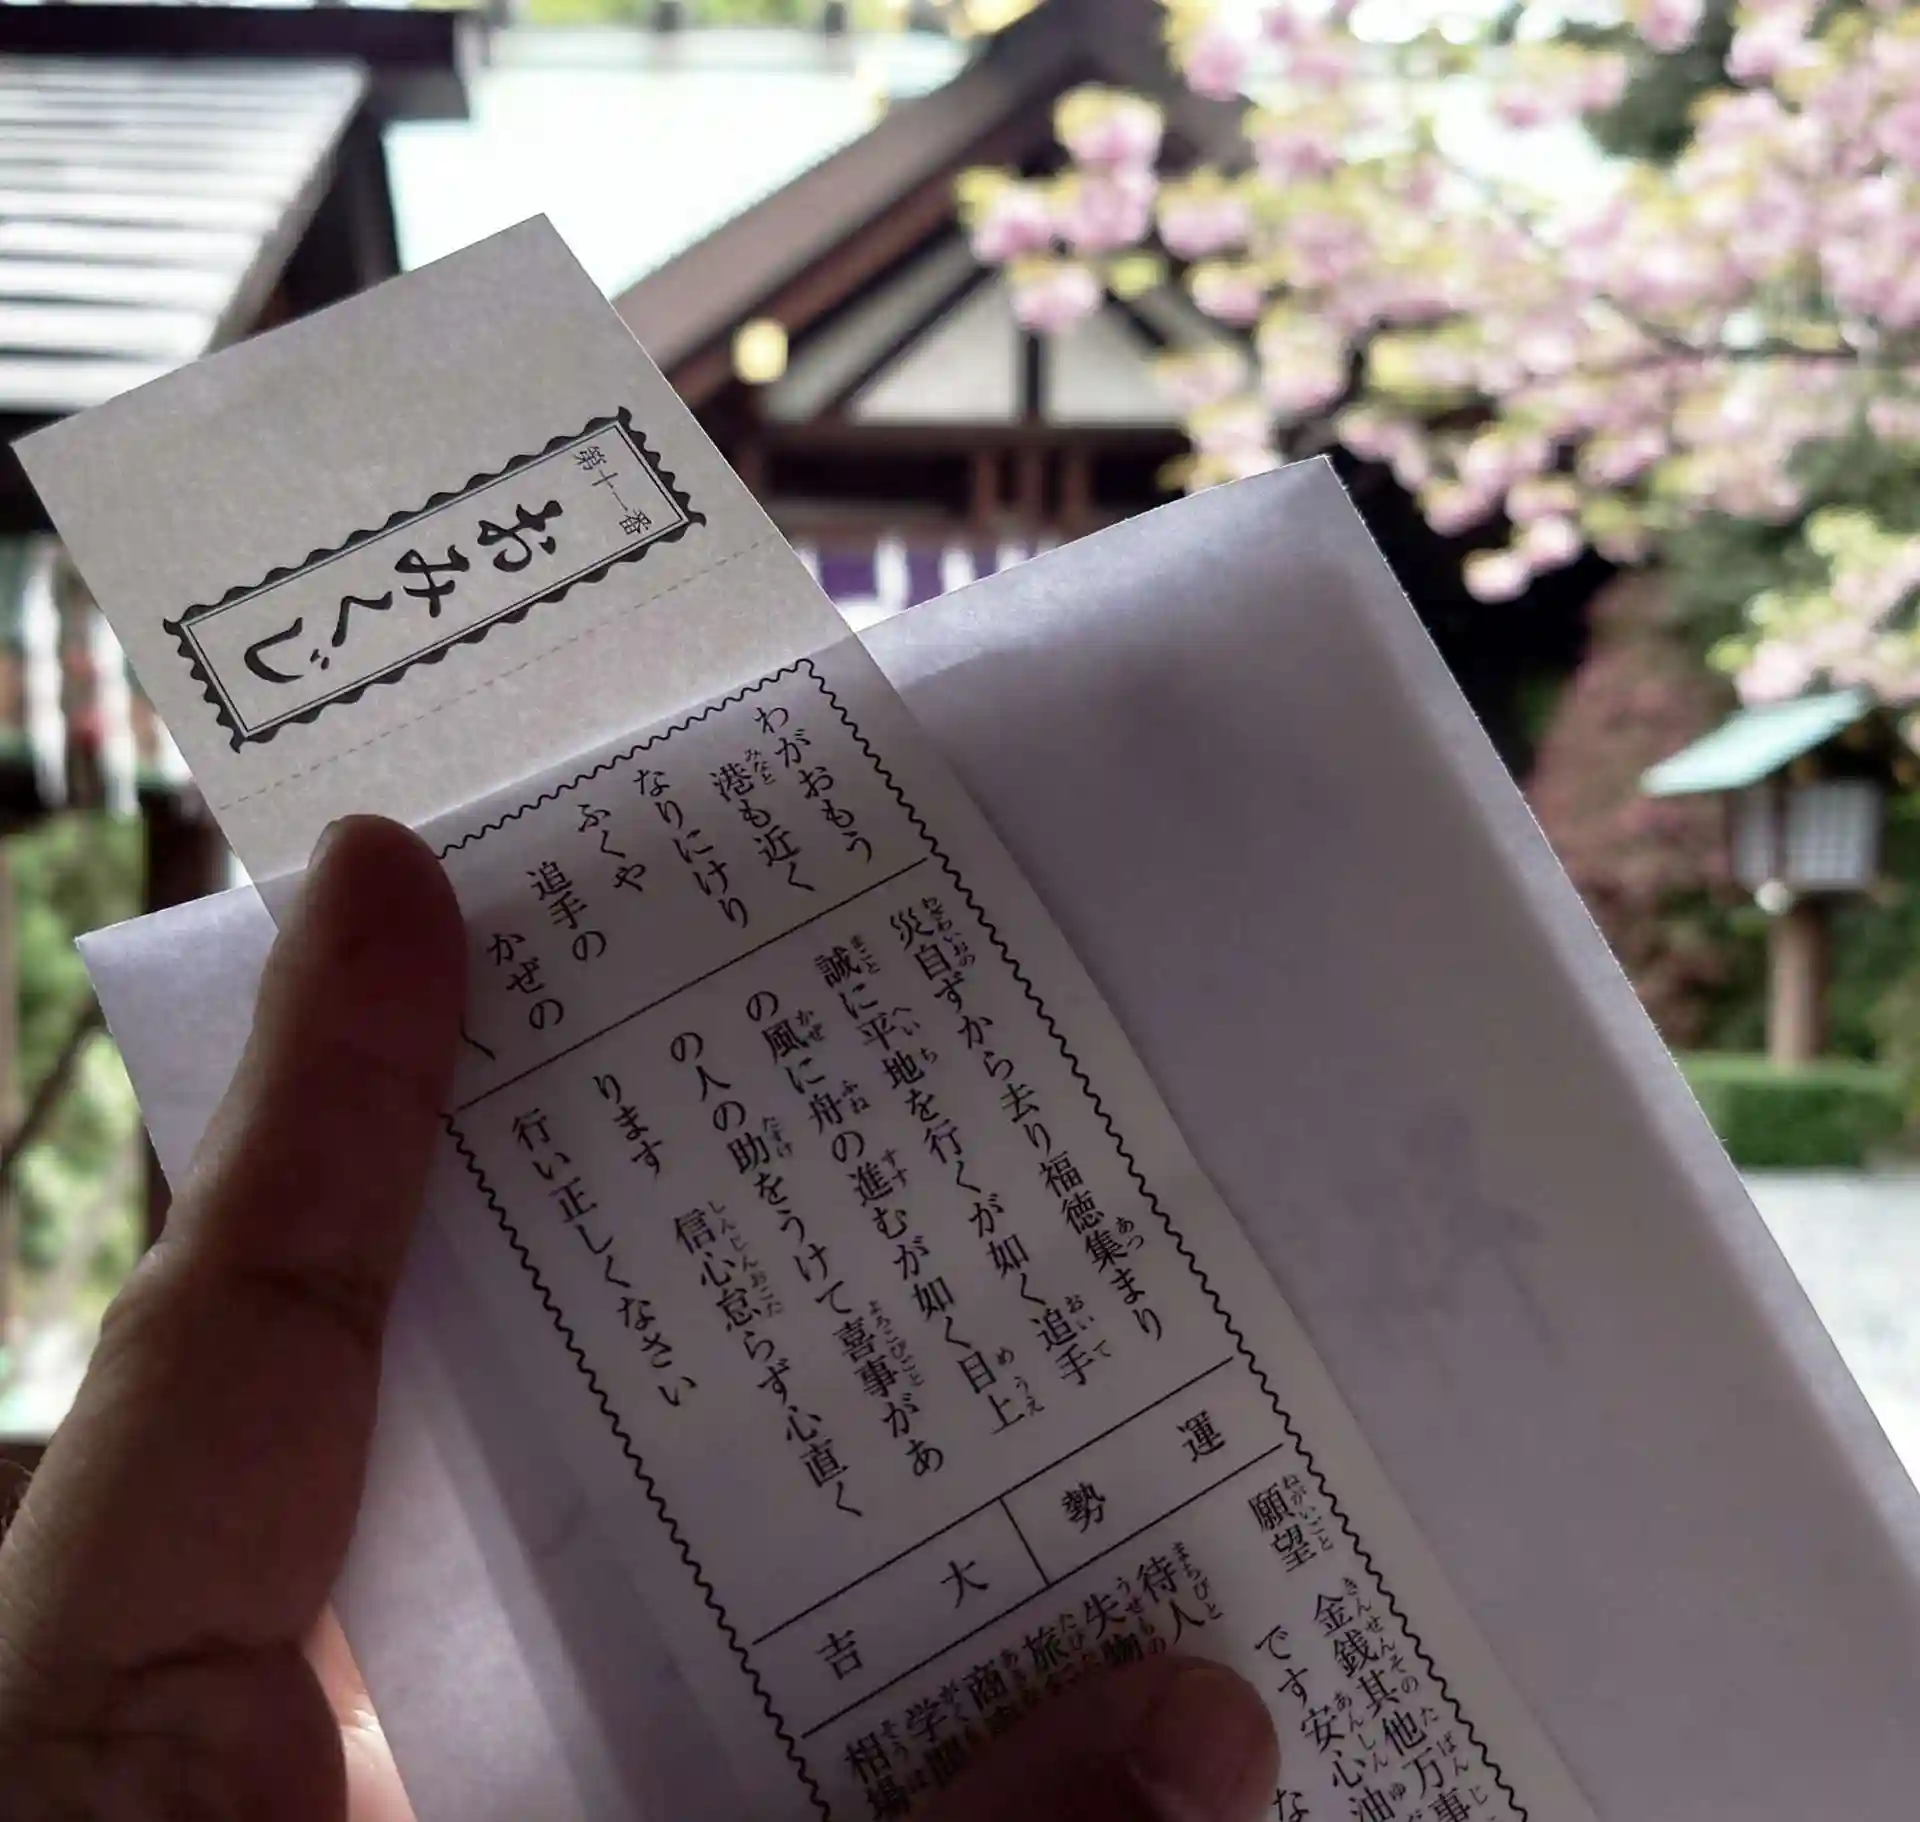 第十一番
おみくじ
わがおもう
港も近く
なりにけり
ふくや
追手の
かぜの
災自ずから去り福徳集まり
誠に平地を行くが如く追手
の風に舟の進むが如く目上
の人の助をうけて喜事があ
ります 信心怠らず心直く
行い正しくなさい
運勢
大吉
願望
金銭其他万事
です安心油
な
待人
失物
旅
商
学問
相場